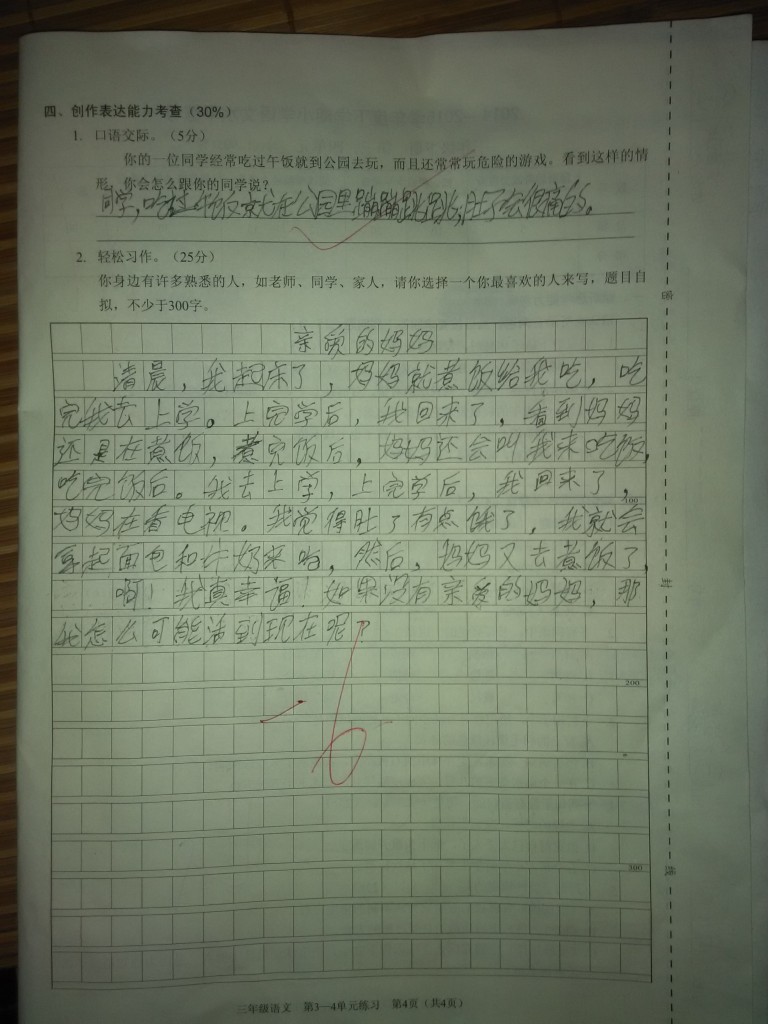 四、创作表达能力考查（30%）
1. 口语交际。（5分）
你的一位同学经常吃过午饭就到公园去玩，而且还常常玩危险的游戏。看到这样的情
形，你会怎么跟你的同学说？
同学，吃过午饭就在公园里蹦蹦跳跳，肚子会很痛的。
2. 轻松习作。（25分）
你身边有许多熟悉的人，如老师、同学、家人，请你选择一个你最喜欢的人来写，题目自
拟，不少于300字。
亲爱的妈妈
清晨，我起床了，妈妈就煮饭给我吃，吃
完我去上学。上完学后，我回来了，看到妈妈
还是在煮饭，煮完饭后，妈妈还会叫我来吃饭，
吃完饭后。我去上学，上完学后，我回来了，
100
妈妈在看电视。我觉得肚子有点饿了，我就会
拿起面包和牛奶来啃，然后，妈妈又去煮饭了，
啊！我真幸福！如果没有亲爱的妈妈，那
我怎么可能活到现在呢？
200
-6
300
密
封
线
三年级语文 第3—4单元练习 第4页（共4页）